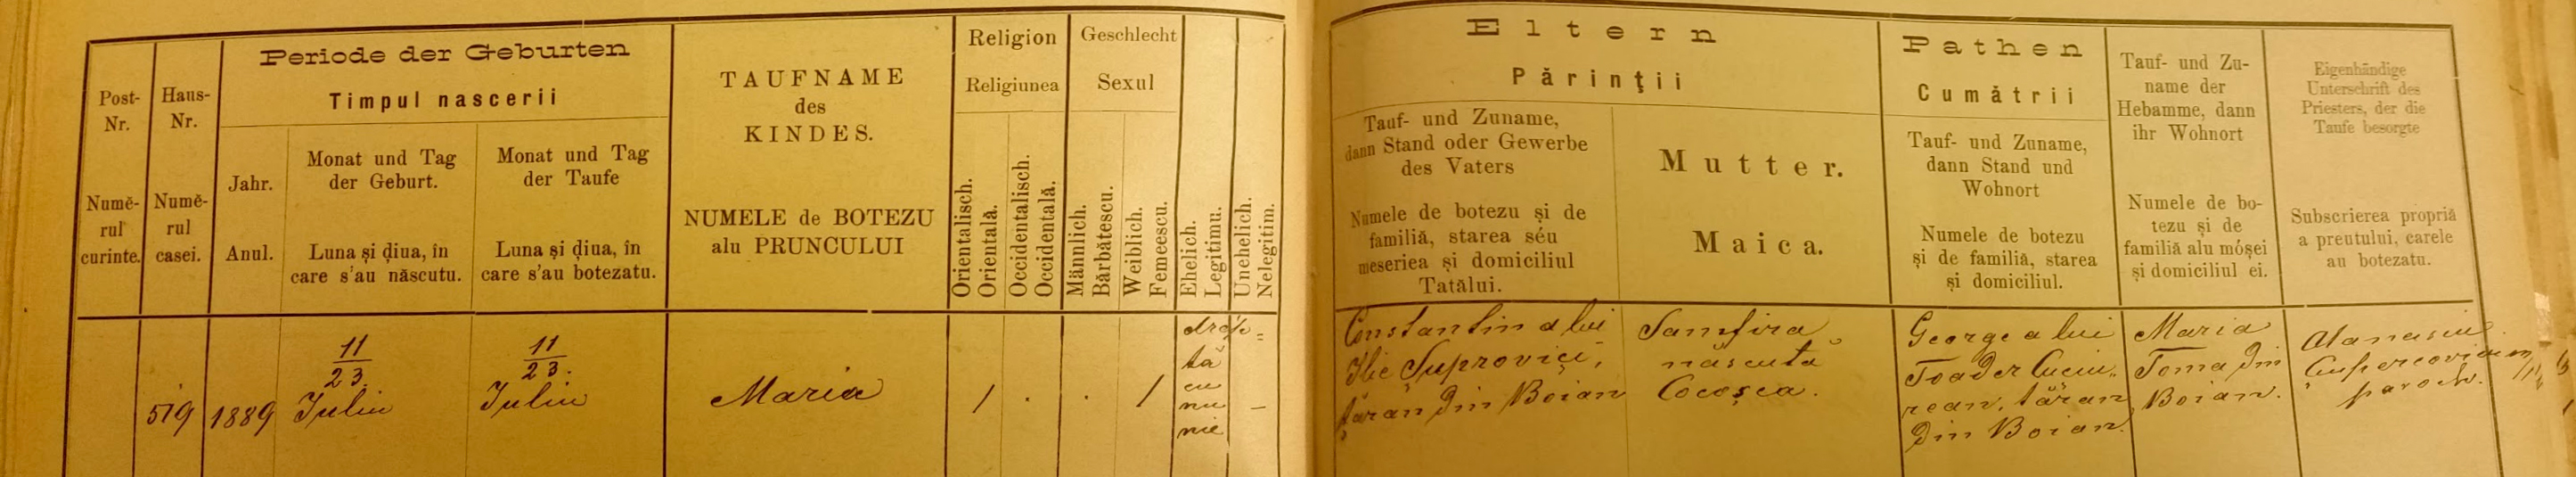 Periode der Geburten
Timpul nascerii
Post-
Nr.
Numĕ-
rul
curinte.
Haus-
Nr.
Numĕ-
rul
casei.
Jahr.
Anul.
Monat und Tag
der Geburt.
Luna și ḑiua, în
care s'au născutu.
Monat und Tag
der Taufe
Luna și ḑiua, în
care s'au botezatu.
TAUFNAME
des
KINDES.
NUMELE de BOTEZU
alu PRUNCULUI
Religion
Religiunea
Orientalisch.
Orientală.
Occidentalisch.
Occidentală.
Geschlecht
Sexul
Männlich.
Bărbătescu.
Weiblich.
Femeescu.
Ehelich.
Legitimu.
Unehelich.
Nelegitim.
Eltern
Părinţii
Tauf- und Zuname,
dann Stand oder Gewerbe
des Vaters
Numele de botezu și de
familiă, starea séu
meseriea și domiciliul
Tatălui.
Mutter.
Maica.
Pathen
Cumătrii
Tauf- und Zuname,
dann Stand und
Wohnort
Numele de botezu
și de familiă, starea
și domiciliul.
Tauf- und Zu-
name der
Hebamme, dann
ihr Wohnort
Numele de bo-
tezu și de
familiă alu móșei
și domiciliul ei.
Eigenhändige
Unterschrift des
Priesters, der die
Taufe besorgte
Subscrierea propriă
a preutului, carele
au botezatu.
519
1889
11
23.
Iuliu
11
23.
Iuliu
Maria
/ . . /
tă
cu
nu
nie
–
Constantin a lui
Ilie Suprovici,
țăran din Boian
Samfira
născută
Cocoșca.
George a lui
Toader Cuciu-
rean, țăran
din Boian.
Maria
Toma din
Boian.
Atanasiu
paroch.